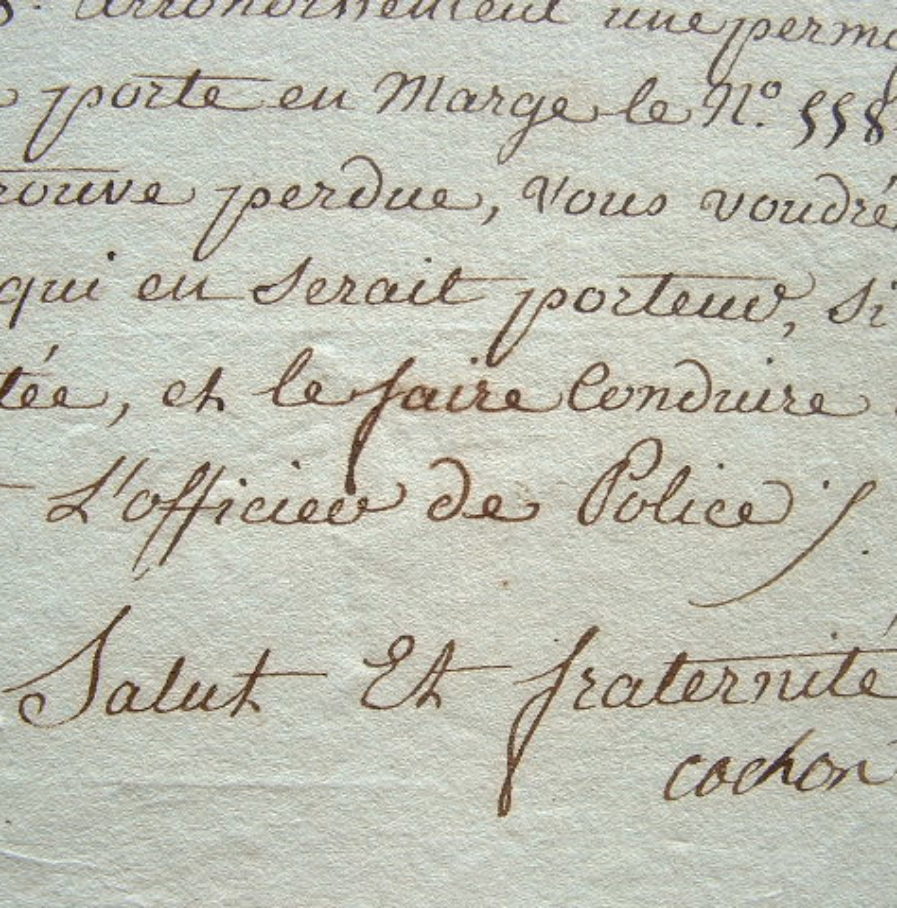 arrondissement une perm
porte en Marge le N.º 558
rouve perdue, Vous voudré
qui en Serait porteur, Si
tée, et le faire Conduire
L'officier de Police /.
Salut Et fraternité
cochon